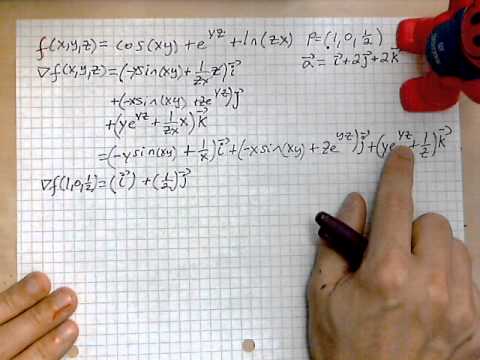 f(x,y,z) = cos(xy) + e^{yz} + ln(zx) P = (1, 0, 1/2)
∇f(x,y,z) = (-y sin(xy) + 1/zx z) i⃗ a⃗ = i⃗ + 2j⃗ + 2k⃗
+ (-x sin(xy) + ze^{yz}) j⃗
+ (ye^{yz} + 1/zx x) k⃗
= (-y sin(xy) + 1/x) i⃗ + (-x sin(xy) + ze^{yz}) j⃗ + (ye^{yz} + 1/z) k⃗
∇f(1,0,1/2) = (i⃗) + (1/2) j⃗